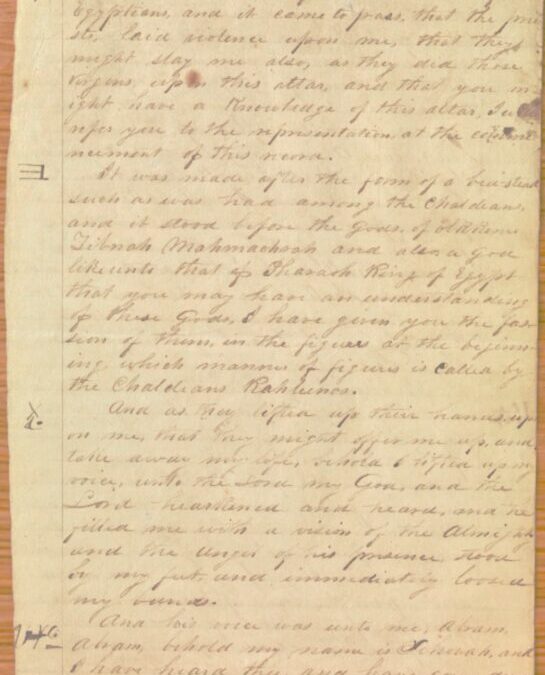 Egyptians, and it come to pass, that the pri
sts, laid violence upon me, that they
might slay me also, as they did those
virgins, upon this altar, and that you m
ight have a Knowledge of this altar, I will
refer you to the representation, at the comm
ncement of this record.
It was made after the form of a bedstead
such as was had among the Chaldeans
and it stood before the Gods, of
Zibnah Mahmachrah and also a God
like unto that of Pharaoh King of Egypt
that you may have an understanding
of these Gods, I have given you the fas
sion of them, in the figures at the beginn
ing which manner of figures is called by
the Chaldeans Kahleenos.
And as they lifted up their hands, up
on me, that they might offer me up, and
take away my life, behold I lifted up my
voice, unto the Lord my God, and the
Lord hearkened and heard, and he
filled me with a vision of the Almighty
and the angel of his presence stood
by my feet, and immediately loosed
my bands.
And his voice was unto me, Abram,
Abram, behold my name is Jehovah, and
I have heard thee and have come